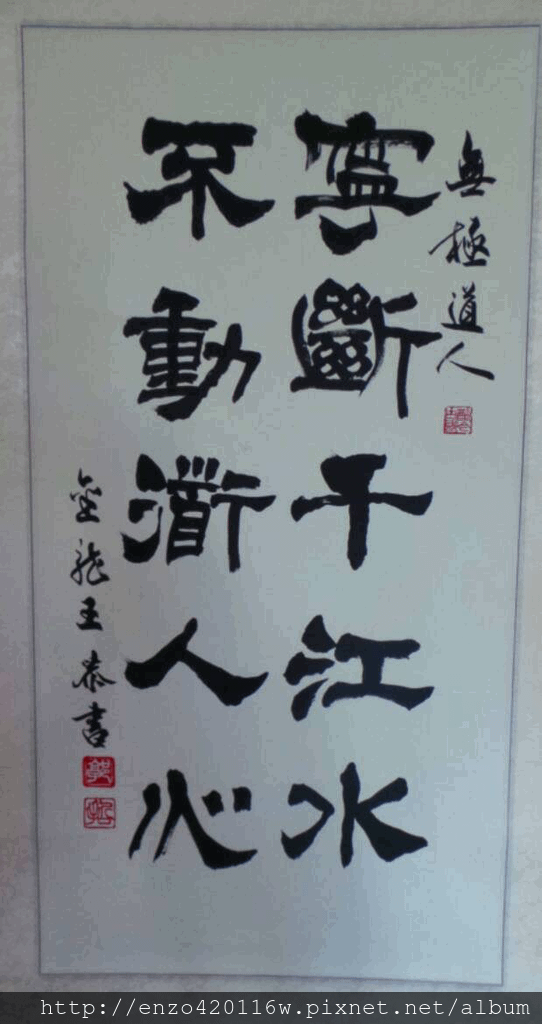 無極道人
寧斷千江水
不動衜人心
金龍王恭書
http://enzo420116w.pixnet.net/album